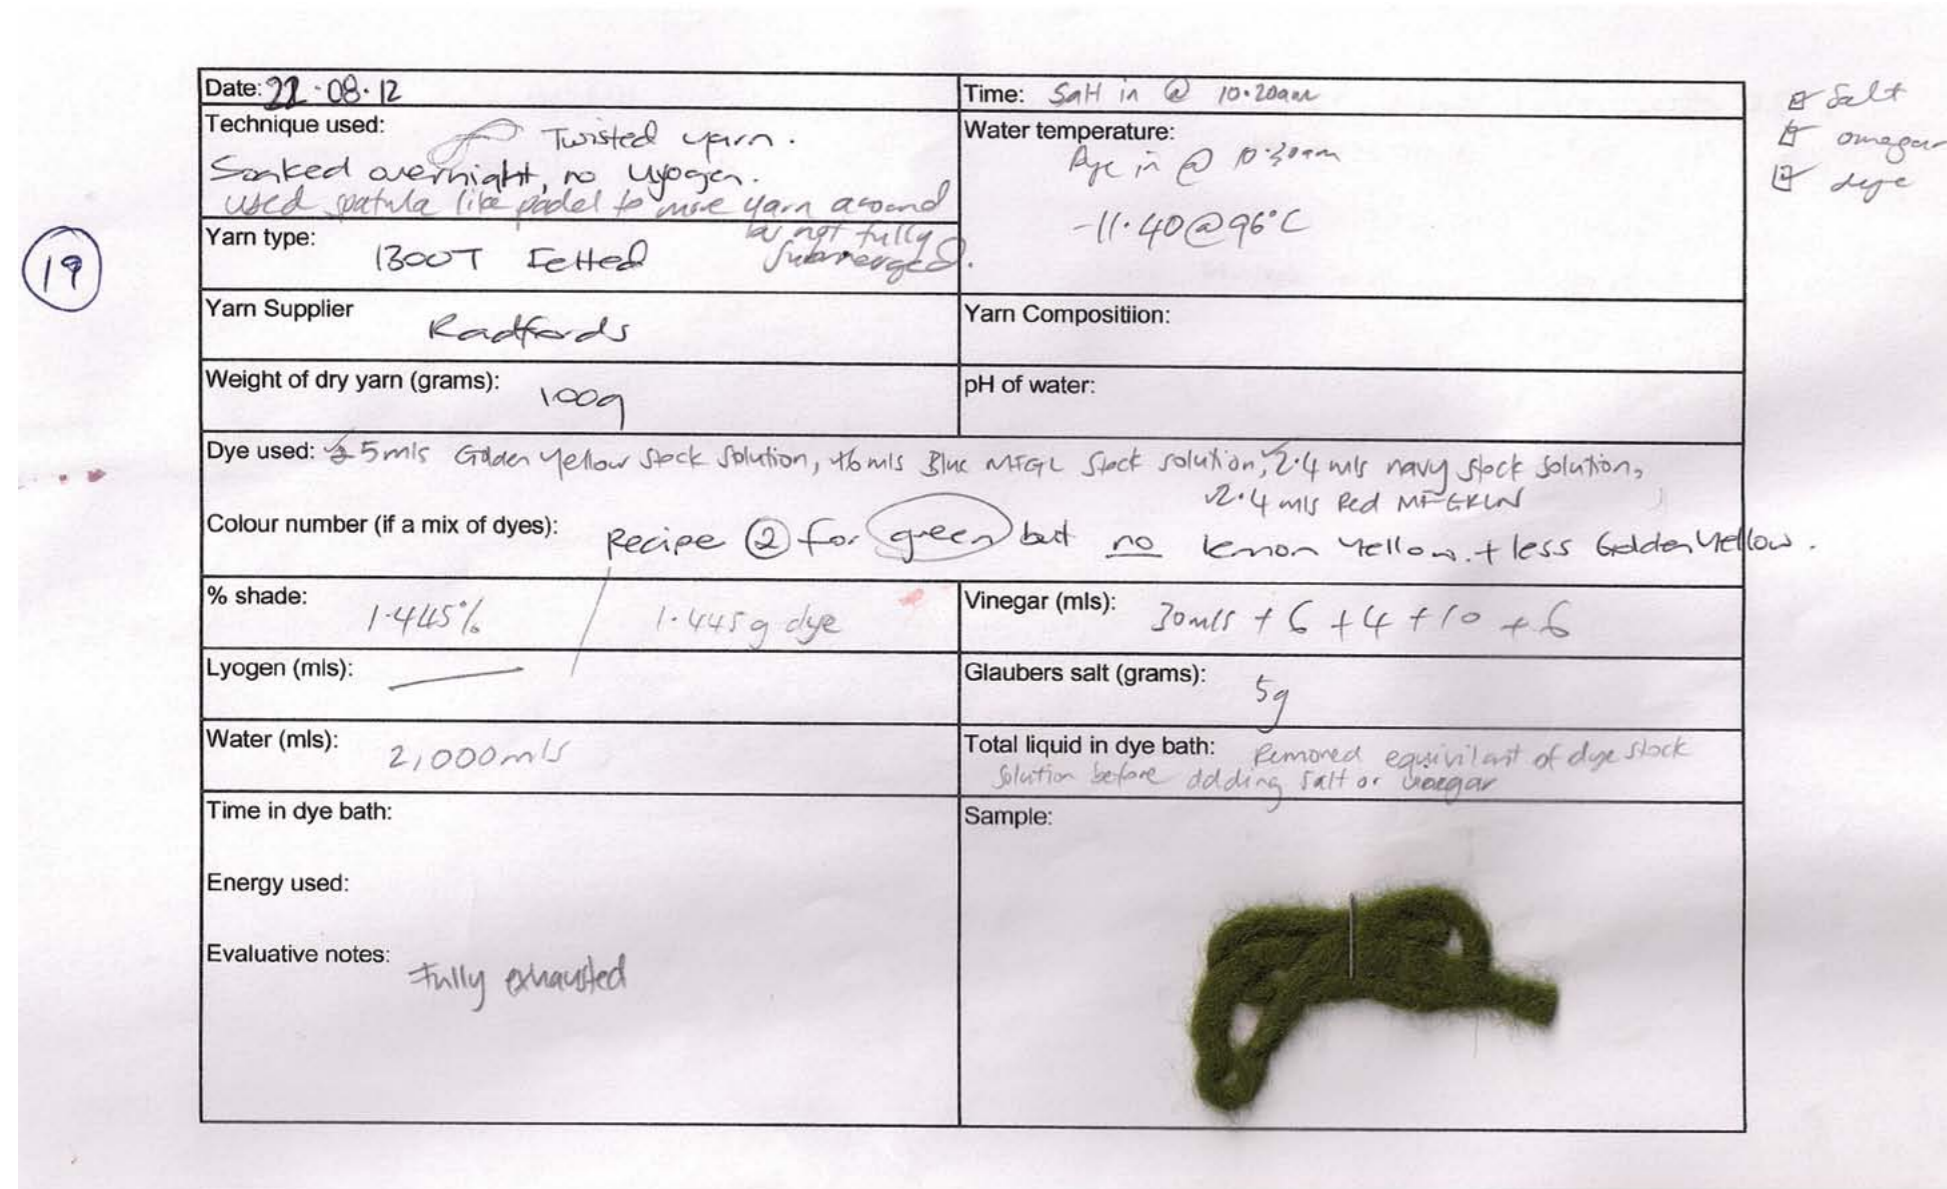 Date: 22.08.12
Time: Salt in @ 10.20am
Salt
Technique used: Twisted yarn.
Water temperature:
Dye in @ 10.30am
omegar
dye
Soaked overnight, no lyogen.
used spatula like padel to move yarn around
but not fully
submerged.
-11.40@96°C
19
Yarn type: 1300T Felted
Yarn Supplier Radfords
Yarn Compositiion:
Weight of dry yarn (grams): 100g
pH of water:
Dye used: 5mls Golden Yellow Stock Solution, 46mls Blue MFGL Stock solution, 2.4 mls navy stock solution,
2.4 mls Red MF-GRLN
Colour number (if a mix of dyes): Recipe 2 for green but no lemon Yellow. + less Golden Yellow.
% shade: 1.445% / 1.445g dye
Vinegar (mls): 30mls + 6 + 4 + 10 + 6
Lyogen (mls): —
Glaubers salt (grams): 5g
Water (mls): 2,000mls
Total liquid in dye bath: Removed equivilant of dye stock
solution before addding salt or vinegar
Time in dye bath:
Sample:
Energy used:
Evaluative notes: Fully exhausted